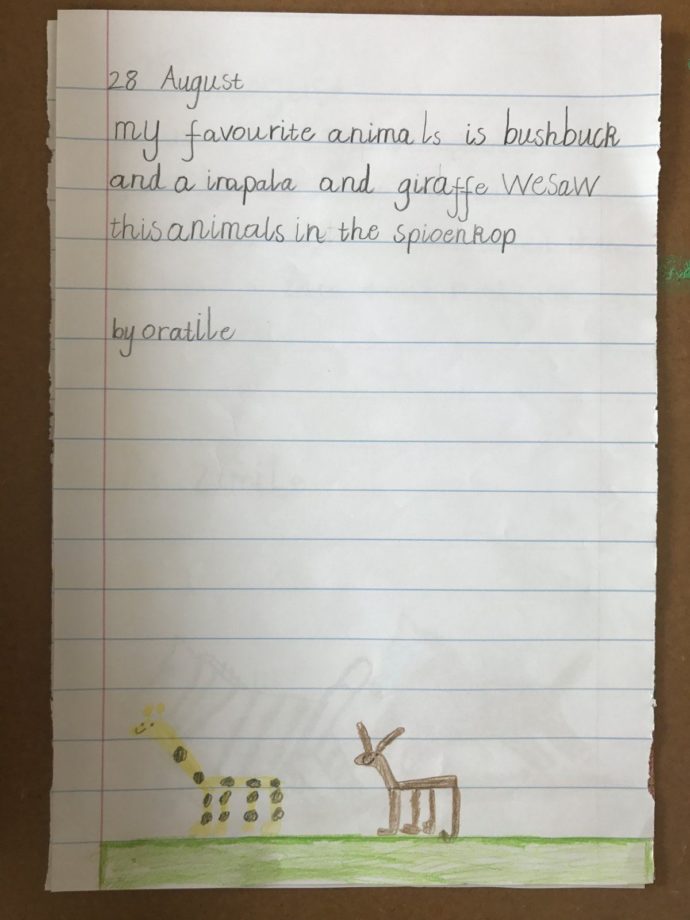 28 August
my favourite animals is bushbuck
and a irapala and giraffe wesaw
this animals in the spioenkop
by oratile